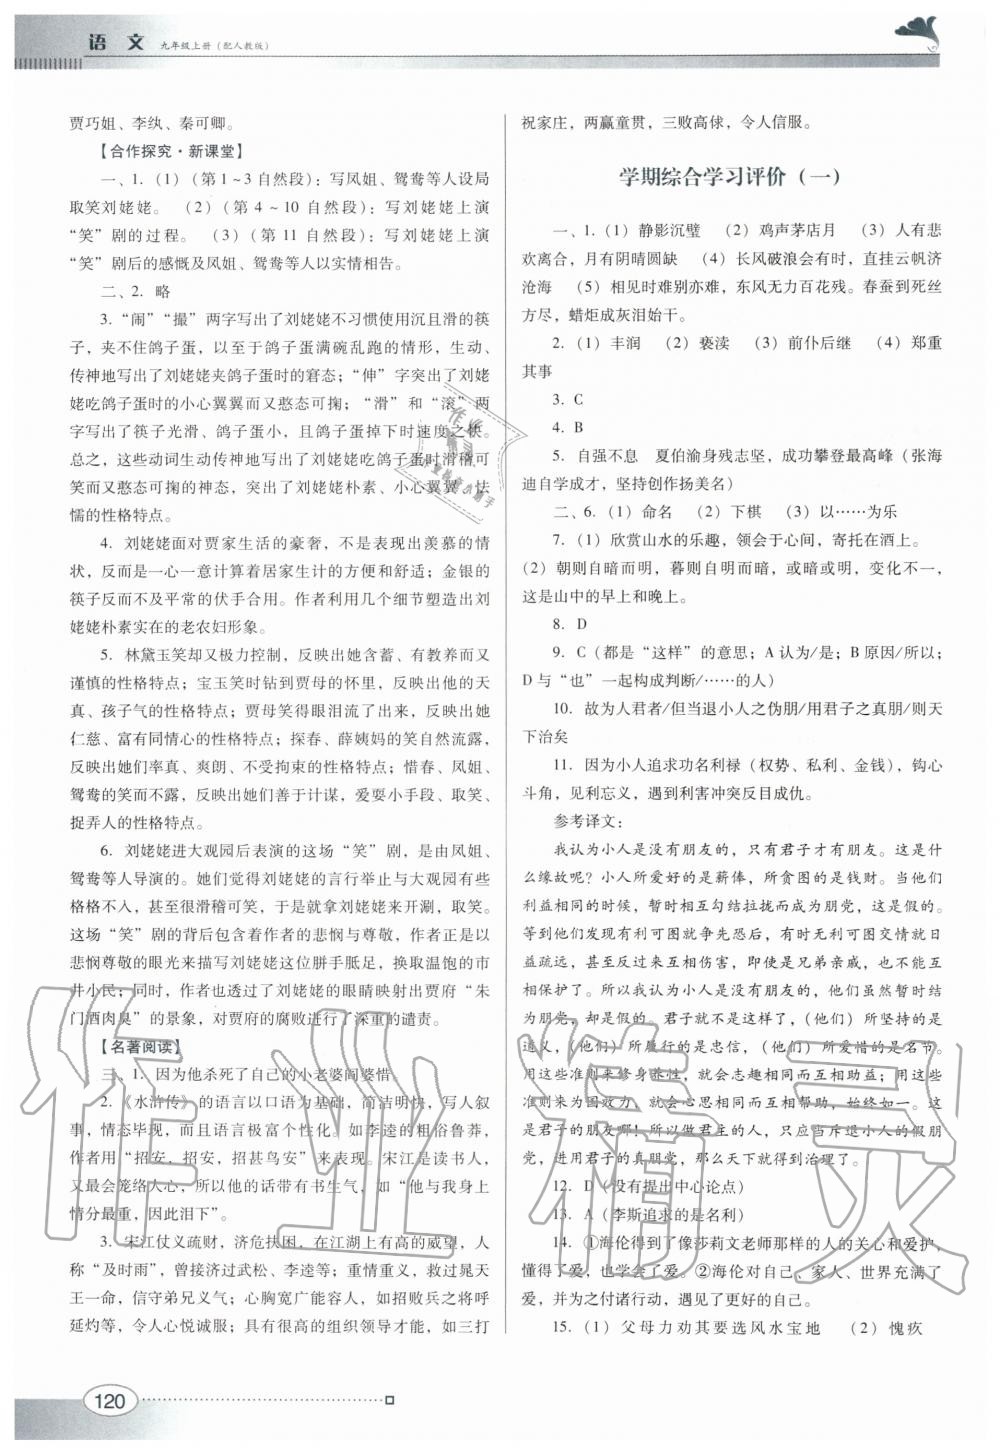 语 文 九年级上册（配人教版）
贾巧姐、李纨、秦可卿。
【合作探究·新课堂】
一、1.（1）（第 1～3 自然段）：写凤姐、鸳鸯等人设局
取笑刘姥姥。（2）（第 4～10 自然段）：写刘姥姥上演
“笑”剧的过程。（3）（第 11 自然段）：写刘姥姥上演
“笑”剧后的感慨及凤姐、鸳鸯等人以实情相告。
二、2. 略
3.“闹”“撮”两字写出了刘姥姥不习惯使用沉且滑的筷
子，夹不住鸽子蛋，以至于鸽子蛋满碗乱跑的情形，生动、
传神地写出了刘姥姥夹鸽子蛋时的窘态；“伸”字突出了刘姥
姥吃鸽子蛋时的小心翼翼而又憨态可掬；“滑”和“滚”两
字写出了筷子光滑、鸽子蛋小，且鸽子蛋掉下时速度之快。
总之，这些动词生动传神地写出了刘姥姥吃鸽子蛋时滑稽可
笑而又憨态可掬的神态，突出了刘姥姥朴素、小心翼翼、怯
懦的性格特点。
4. 刘姥姥面对贾家生活的豪奢，不是表现出羡慕的情
状，反而是一心一意计算着居家生计的方便和舒适；金银的
筷子反而不及平常的伏手合用。作者利用几个细节塑造出刘
姥姥朴素实在的老农妇形象。
5. 林黛玉笑却又极力控制，反映出她含蓄、有教养而又
谨慎的性格特点；宝玉笑时钻到贾母的怀里，反映出他的天
真、孩子气的性格特点；贾母笑得眼泪流了出来，反映出她
仁慈、富有同情心的性格特点；探春、薛姨妈的笑自然流露，
反映出她们率真、爽朗、不受拘束的性格特点；惜春、凤姐、
鸳鸯的笑而不露，反映出她们善于计谋，爱耍小手段、取笑、
捉弄人的性格特点。
6. 刘姥姥进大观园后表演的这场“笑”剧，是由凤姐、
鸳鸯等人导演的。她们觉得刘姥姥的言行举止与大观园有些
格格不入，甚至很滑稽可笑，于是就拿刘姥姥来开涮，取笑。
这场“笑”剧的背后包含着作者的悲悯与尊敬，作者正是以
悲悯尊敬的眼光来描写刘姥姥这位胼手胝足，换取温饱的市
井小民；同时，作者也透过了刘姥姥的眼睛映射出贾府“朱
门酒肉臭”的景象，对贾府的腐败进行了深重的谴责。
【名著阅读】
三、1. 因为他杀死了自己的小老婆阎婆惜
2.《水浒传》的语言以口语为基础，简洁明快，写人叙
事，情态毕现，而且语言极富个性化。如李逵的粗俗鲁莽，
作者用“招安，招安，招甚鸟安”来表现。宋江是读书人，
又最会笼络人心，所以他的话带有书生气，如“他与我身上
情分最重，因此泪下”。
3. 宋江仗义疏财，济危扶困，在江湖上有高的威望，人
称“及时雨”，曾接济过武松、李逵等；重情重义，救过晁天
王一命，信守弟兄义气；心胸宽广能容人，如招败兵之将呼
延灼等，令人心悦诚服；具有很高的组织领导才能，如三打
祝家庄，两赢童贯，三败高俅，令人信服。
学期综合学习评价（一）
一、1.（1）静影沉璧 （2）鸡声茅店月 （3）人有悲
欢离合，月有阴晴圆缺 （4）长风破浪会有时，直挂云帆济
沧海 （5）相见时难别亦难，东风无力百花残。春蚕到死丝
方尽，蜡炬成灰泪始干。
2.（1）丰润 （2）亵渎 （3）前仆后继 （4）郑重
其事
3. C
4. B
5. 自强不息 夏伯渝身残志坚，成功攀登最高峰（张海
迪自学成才，坚持创作扬美名）
二、6.（1）命名 （2）下棋 （3）以……为乐
7.（1）欣赏山水的乐趣，领会于心间，寄托在酒上。
（2）朝则自暗而明，暮则自明而暗，或暗或明，变化不一，
这是山中的早上和晚上。
8. D
9. C（都是“这样”的意思；A 认为/是；B 原因/所以；
D 与“也”一起构成判断/……的人）
10. 故为人君者/但当退小人之伪朋/用君子之真朋/则天
下治矣
11. 因为小人追求功名利禄（权势、私利、金钱），钩心
斗角，见利忘义，遇到利害冲突反目成仇。
参考译文：
我认为小人是没有朋友的，只有君子才有朋友。这是什
么缘故呢？小人所爱好的是薪俸，所贪图的是钱财。当他们
利益相同的时候，暂时相互勾结拉拢而成为朋党，这是假的。
等到他们发现有利可图就争先恐后，有时无利可图交情就日
益疏远，甚至反过来互相伤害，即使是兄弟亲戚，也不会互
相保护了。所以我认为小人是没有朋友的，他们虽然暂时结
为朋党，却是假的。君子就不是这样了，（他们）所坚持的是
道义，（他们）所履行的是忠信，（他们）所爱惜的是名节。
用这些准则来修身养性，就会志趣相同而互相助益；用这些
准则来为国效力，就会心思相同而互相帮助，始终如一。这
是君子的朋友啊！所以做君主的人，只应当斥退小人的假朋
党，进用君子的真朋党，那么天下就得到治理了。
12. D（没有提出中心论点）
13. A（李斯追求的是名利）
14. ①海伦得到了像莎莉文老师那样的人的关心和爱护，
懂得了爱，也学会了爱。②海伦对自己、家人、世界充满了
爱，并为之付诸行动，遇见了更好的自己。
15.（1）父母力劝其要选风水宝地 （2）愧疚
120
作业精灵